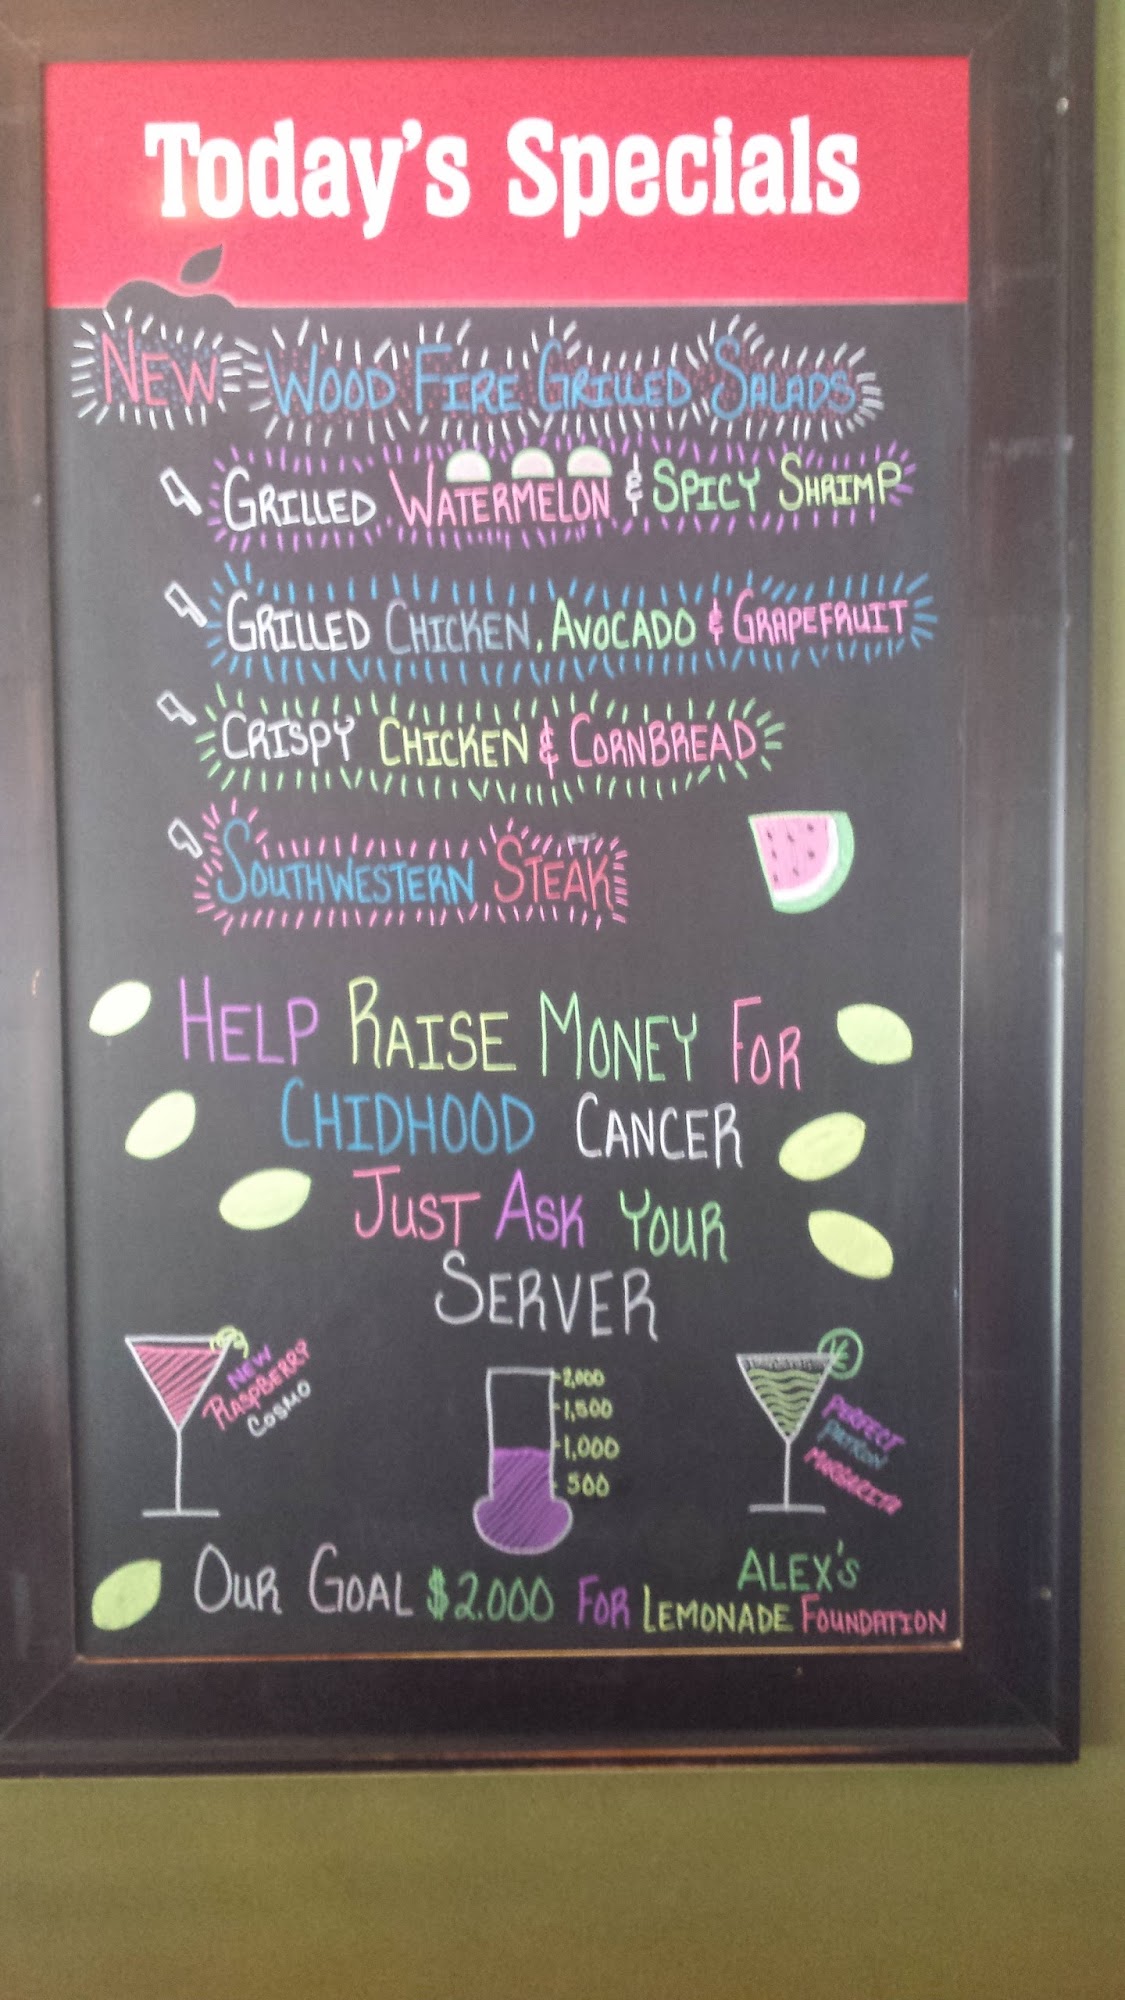 Today's Specials
NEW WOOD FIRE GRILLED SALADS
GRILLED WATERMELON & SPICY SHRIMP
GRILLED CHICKEN, AVOCADO & GRAPEFRUIT
CRISPY CHICKEN & CORNBREAD
SOUTHWESTERN STEAK
HELP RAISE MONEY FOR
CHIDHOOD CANCER
JUST ASK YOUR
SERVER
NEW
RASPBERRY
COSMO
2,000
1,500
1,000
500
PERFECT
PATRON
MARGARITA
OUR GOAL $2.000 FOR ALEX'S
LEMONADE FOUNDATION